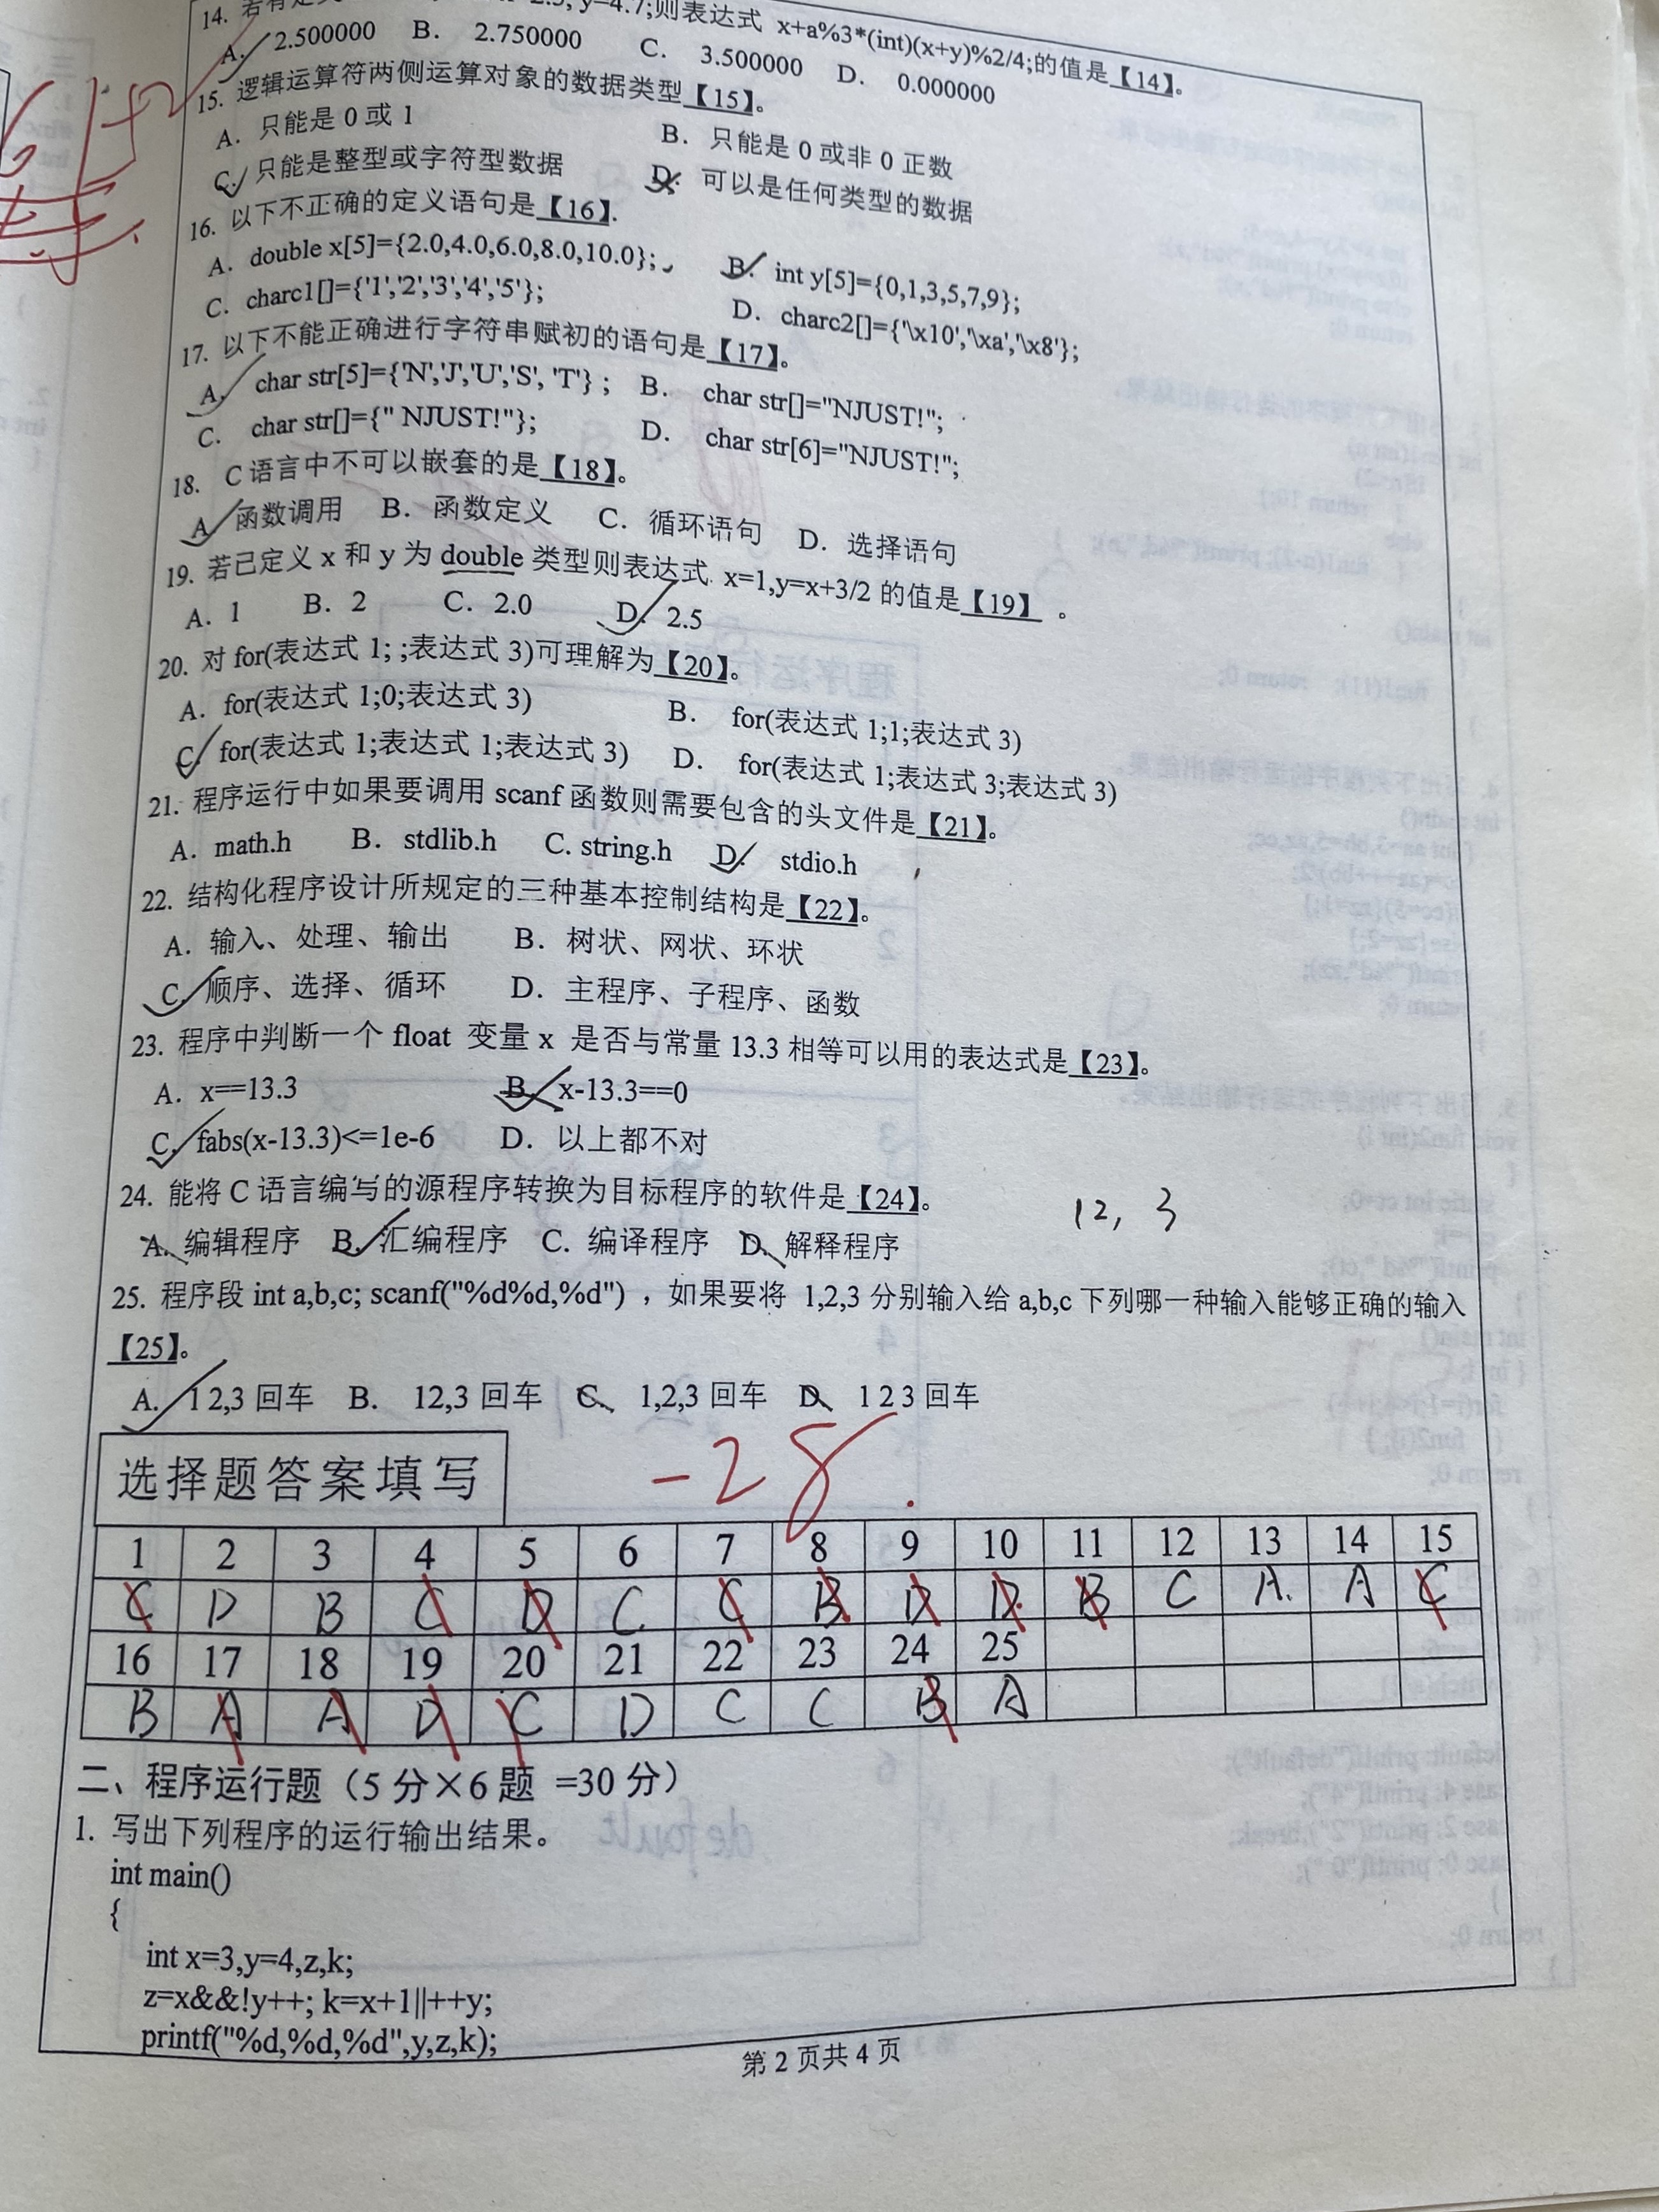 y=4.7;则表达式 x+a%3*(int)(x+y)%2/4;的值是【14】。
14.
A. 2.500000 B. 2.750000 C. 3.500000 D. 0.000000
15. 逻辑运算符两侧运算对象的数据类型【15】。
A. 只能是 0 或 1 B. 只能是 0 或非 0 正数
C. 只能是整型或字符型数据 D. 可以是任何类型的数据
16. 以下不正确的定义语句是【16】.
A. double x[5]={2.0,4.0,6.0,8.0,10.0}; B. int y[5]={0,1,3,5,7,9};
C. charc1[]={'1','2','3','4','5'}; D. charc2[]={'\x10','\xa','\x8'};
17. 以下不能正确进行字符串赋初的语句是【17】。
A. char str[5]={'N','J','U','S', 'T'} ; B. char str[]="NJUST!";
C. char str[]={" NJUST!"}; D. char str[6]="NJUST!";
18. C 语言中不可以嵌套的是【18】。
A 函数调用 B. 函数定义 C. 循环语句 D. 选择语句
19. 若已定义 x 和 y 为 double 类型则表达式 x=1,y=x+3/2 的值是【19】 。
A. 1 B. 2 C. 2.0 D. 2.5
20. 对 for(表达式 1; ;表达式 3)可理解为【20】。
A. for(表达式 1;0;表达式 3) B. for(表达式 1;1;表达式 3)
C. for(表达式 1;表达式 1;表达式 3) D. for(表达式 1;表达式 3;表达式 3)
21. 程序运行中如果要调用 scanf 函数则需要包含的头文件是【21】。
A. math.h B. stdlib.h C. string.h D. stdio.h
22. 结构化程序设计所规定的三种基本控制结构是【22】。
A. 输入、处理、输出 B. 树状、网状、环状
C. 顺序、选择、循环 D. 主程序、子程序、函数
23. 程序中判断一个 float 变量 x 是否与常量 13.3 相等可以用的表达式是【23】。
A. x==13.3 B. x-13.3==0
C. fabs(x-13.3)<=1e-6 D. 以上都不对
24. 能将 C 语言编写的源程序转换为目标程序的软件是【24】。
12, 3
A. 编辑程序 B. 汇编程序 C. 编译程序 D. 解释程序
25. 程序段 int a,b,c; scanf("%d%d,%d") ，如果要将 1,2,3 分别输入给 a,b,c 下列哪一种输入能够正确的输入
【25】。
A. 1 2,3 回车 B. 12,3 回车 C. 1,2,3 回车 D. 1 2 3 回车
-28.
选择题答案填写
1 2 3 4 5 6 7 8 9 10 11 12 13 14 15
C D B C D C C B D D B C A. A C
16 17 18 19 20 21 22 23 24 25
B A A D C D C C B A
二、程序运行题（5 分×6 题 =30 分）
1. 写出下列程序的运行输出结果。
int main()
{
int x=3,y=4,z,k;
z=x&&!y++; k=x+1||++y;
printf("%d,%d,%d",y,z,k);
第 2 页共 4 页